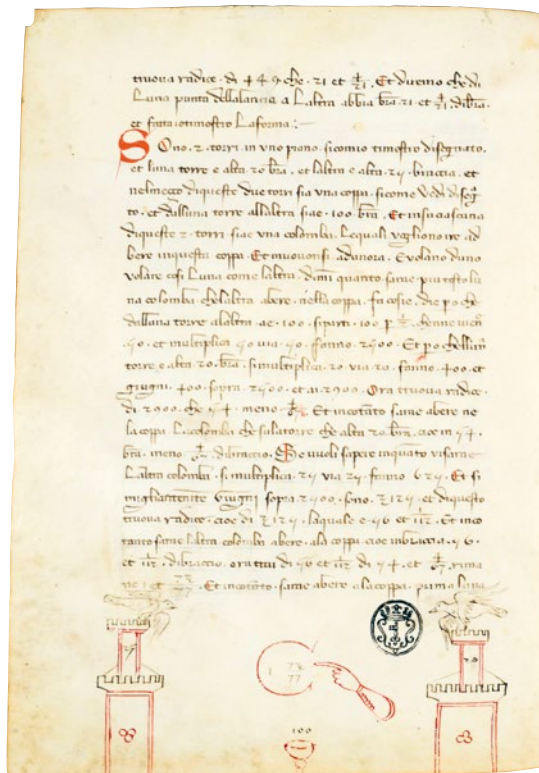 truova radice · di 449 che · 21 et · Et diremo che di
luna punta della lancia a laltra abbia bra · 21 · et · di bra
et fatta · sicome timostro la forma
Sono · 2 · torri · in uno piano · sicomio timostro disegnato ·
et luna torre e alta · 20 · bra · et laltra e alta · 25 · braccia · et
nelmeço di queste due torri sia una coppa · sicome vedi diseg
to · et dalluna torre allaltra siae · 100 · bra · Et insu ciascuna
di queste 2 · torri · siae una colomba · Lequali vogliono ire ad
bere inquesta coppa · Et muovonsi adunora · E volano duno
volare cosi luna come laltra · dimi quanto sarae piu tosto lu
na colomba · chelaltra abere · nella coppa · fa cosie · die po che
dalluna torre alaltra · ae · 100 · siparti · 100 p · 1/2 · chenne viene
50 · et multiplica · 50 via · 50 · fanno · 2500 · Et po che llam
torre e alta · 20 · bra · si multiplica · 20 · via 20 · fanno · 400 · et
giugni · 400 · sopra · 2500 · et ai · 2900 · Ora truova radice ·
di · 2900 · che 54 · meno · Et incotanto sarae abere ne
la coppa · la colomba che sulatorre che alta 20 bra · cioe in 54 ·
bra · meno · di braccio · Se vuoli sapere inquato visarae
laltra colomba · si multiplica · 25 via 25 · fanno 625 · Et si
migliantemente · giugni sopra · 2500 · sono · 3125 · et di questo
truova radice · cioe di 3125 · laquale e · 56 et · Et inco
tanto sarae laltra colomba abere · ala coppa cioe inbraccia · 56 ·
et · di braccio · ora trai di 56 et · di 54 · et · rima
ne 1 et · Et incotanto · sarae abere ala coppa · prima luna
25
20
1 73/77
100